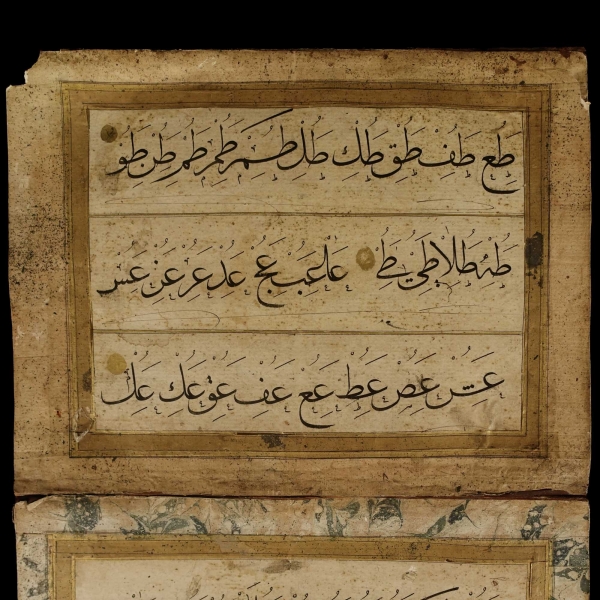 طع طف طق طك طل طم طم طم طن طو
طه طلا طي طي عا عب عج عد عر عر عس
عس عص عط عع عف عق عك عل